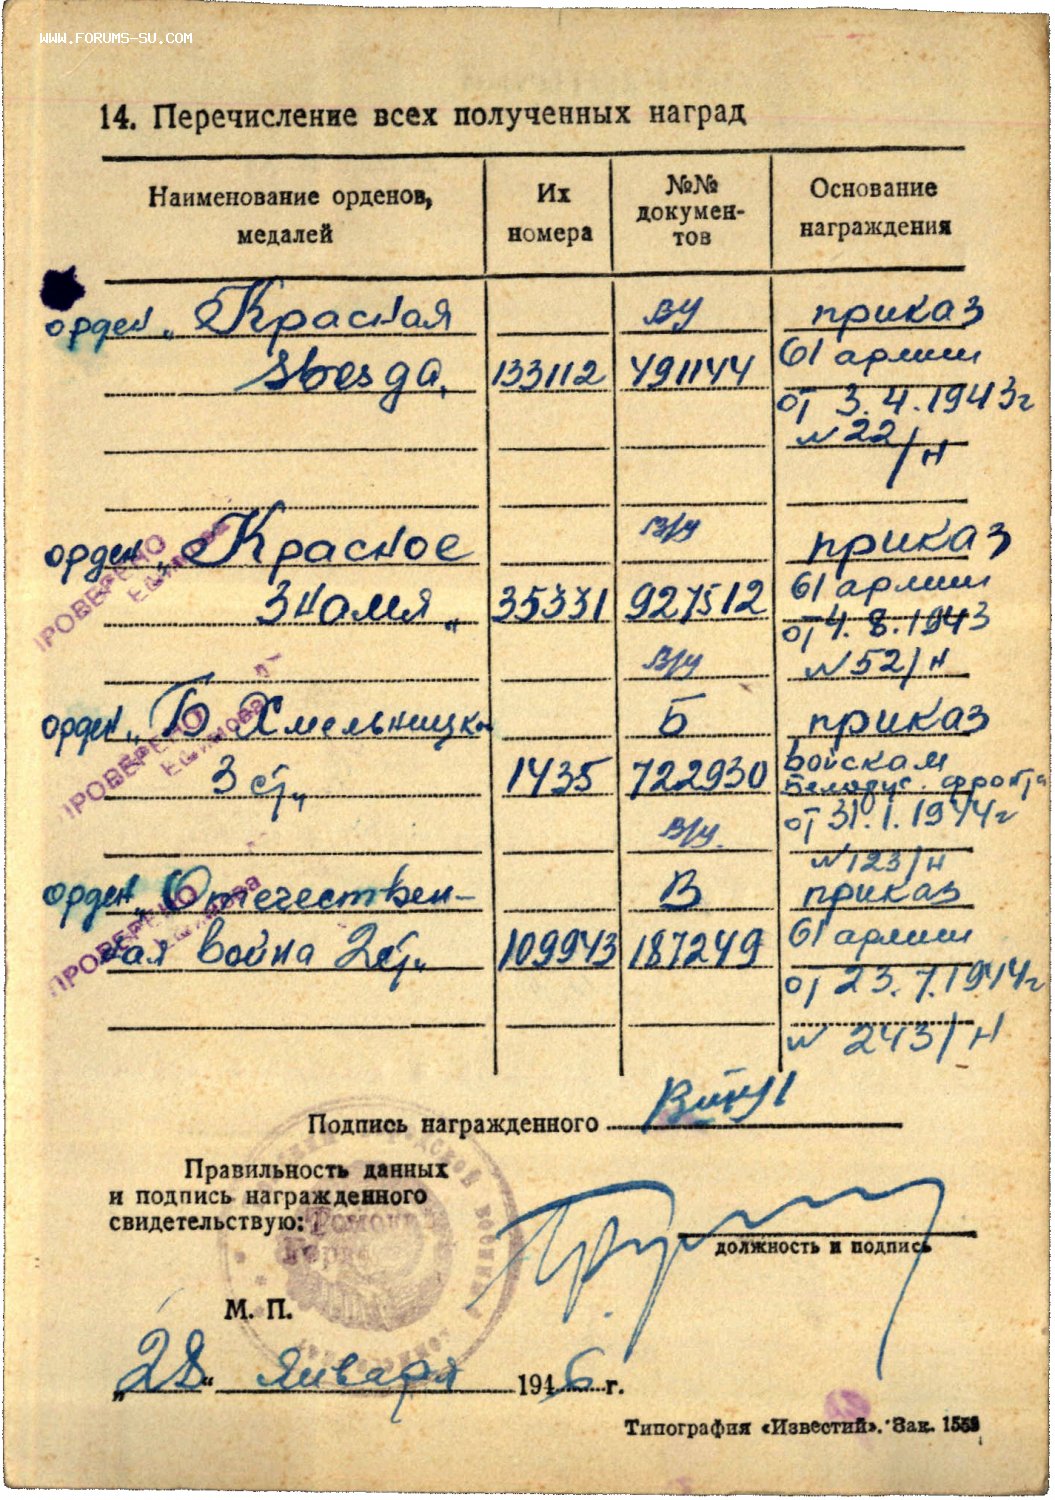 WWW.FORUMS-SU.COM
14. Перечисление всех полученных наград
Наименование орденов, медалей
Их номера
№№ докумен-тов
Основание награждения
орден „Красная
в/у
приказ
Звезда"
133112
491144
61 армии
от 3.4.1943г
№22/н
орден „Красное
в/у
приказ
Знамя"
35331
927512
61 армии
от 4.8.1943
№52/н
в/у
орден „Б Хмельницко
Б
приказ
3 ст"
1435
722930
войскам
Белорус. фронта
от 31.1.1944г
в/у
№123/н
орден „Отечествен-
В
приказ
ная война 2ст"
109943
187249
61 армии
от 23.7.1944г
№ 243/н
ПРОВЕРЕНО
Ефимова
ПРОВЕРЕНО
Ефимова
ПРОВЕРЕНО
Ефимова
Подпись награжденного
Правильность данных
и подпись награжденного
свидетельствую:
должность и подпись
М. П.
„28" января 1946 г.
Типография «Известий». Зак. 1559